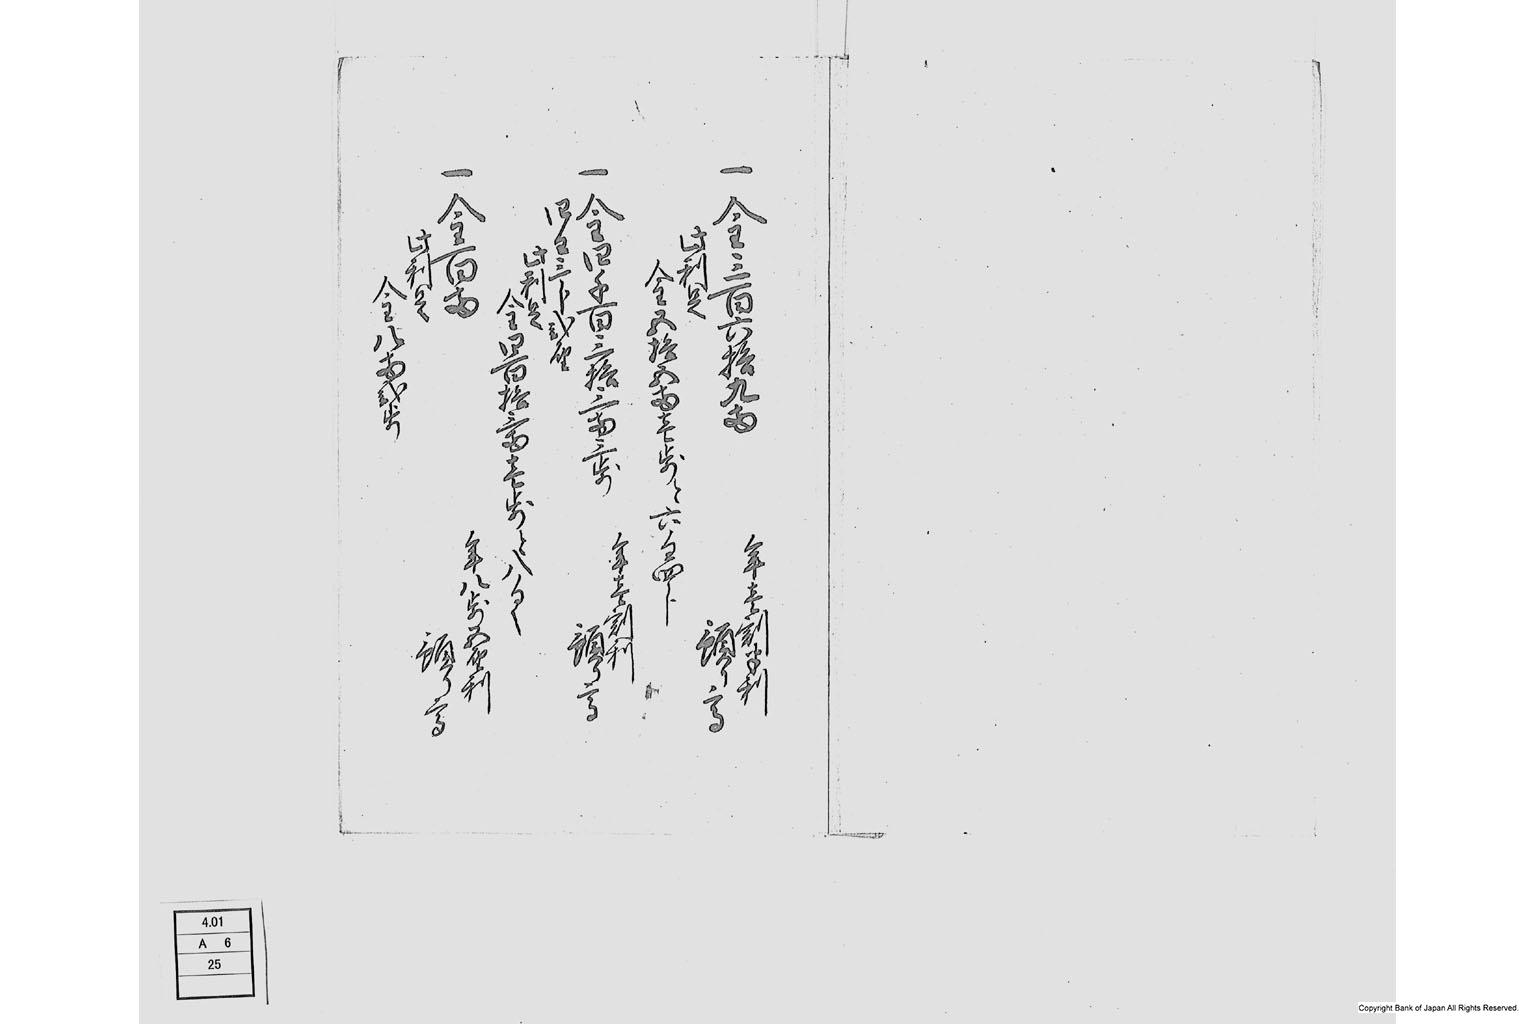 一 金三百六拾九両
年壱割半利
預り高
此利足
金五拾五両壱歩と六匁四分
一 金四千百三拾二両三歩
年壱割利
預り高
四匁三分弐厘
此利足
金四百拾三両壱歩と八匁
一 金百両
年八歩五厘利
預り高
此利足
金八両弐歩
4.01
A 6
25
Copyright Bank of Japan All Rights Reserved.